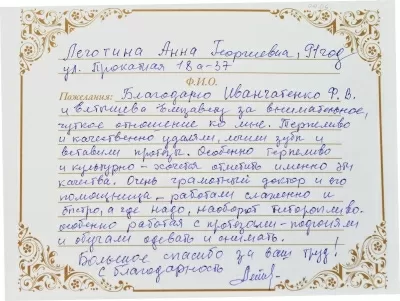 Леготина Анна Георгиевна, 91 год
ул. Прокатная 18а-37
Ф.И.О.
Пожелания: Благодарю Иванчатенко Ф. В.
и Елизавету за внимательное,
чуткое отношение ко мне. Терпеливо
и качественно удаляли, лечили зубы и
вставили протезы. Особенно терпеливо
и культурно – хочется отметить именно эти
качества. Очень грамотный доктор и его
помощница – работали слаженно и
быстро, а где надо, наоборот неторопливо.
особенно работая с протезами – подгоняли
и обучали одевать и снимать.
Большое спасибо за ваш труд!
С благодарностью